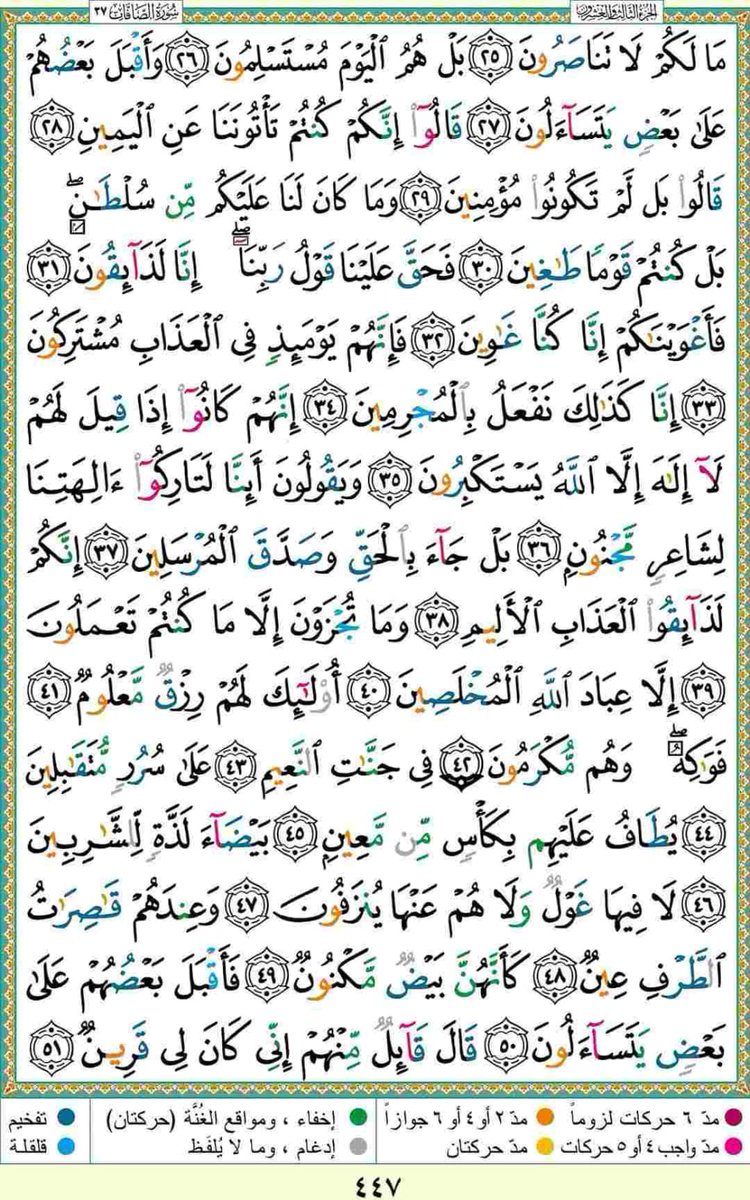 الجزء الثالث والعشرون سورة الصافات ٣٧
مَا لَكُمْ لَا تَنَاصَرُونَ ٢٥ بَلْ هُمُ ٱلْيَوْمَ مُسْتَسْلِمُونَ ٢٦ وَأَقْبَلَ بَعْضُهُمْ
عَلَىٰ بَعْضٍ يَتَسَآءَلُونَ ٢٧ قَالُوٓا۟ إِنَّكُمْ كُنتُمْ تَأْتُونَنَا عَنِ ٱلْيَمِينِ ٢٨
قَالُوا۟ بَل لَّمْ تَكُونُوا۟ مُؤْمِنِينَ ٢٩ وَمَا كَانَ لَنَا عَلَيْكُم مِّن سُلْطَٰنٍۭ ۖ
بَلْ كُنتُمْ قَوْمًا طَٰغِينَ ٣٠ فَحَقَّ عَلَيْنَا قَوْلُ رَبِّنَآ ۖ إِنَّا لَذَآئِقُونَ ٣١
فَأَغْوَيْنَٰكُمْ إِنَّا كُنَّا غَٰوِينَ ٣٢ فَإِنَّهُمْ يَوْمَئِذٍ فِى ٱلْعَذَابِ مُشْتَرِكُونَ
٣٣ إِنَّا كَذَٰلِكَ نَفْعَلُ بِٱلْمُجْرِمِينَ ٣٤ إِنَّهُمْ كَانُوٓا۟ إِذَا قِيلَ لَهُمْ
لَآ إِلَٰهَ إِلَّا ٱللَّهُ يَسْتَكْبِرُونَ ٣٥ وَيَقُولُونَ أَئِنَّا لَتَارِكُوٓا۟ ءَالِهَتِنَا
لِشَاعِرٍ مَّجْنُونٍۭ ٣٦ بَلْ جَآءَ بِٱلْحَقِّ وَصَدَّقَ ٱلْمُرْسَلِينَ ٣٧ إِنَّكُمْ
لَذَآئِقُوا۟ ٱلْعَذَابِ ٱلْأَلِيمِ ٣٨ وَمَا تُجْزَوْنَ إِلَّا مَا كُنتُمْ تَعْمَلُونَ
٣٩ إِلَّا عِبَادَ ٱللَّهِ ٱلْمُخْلَصِينَ ٤٠ أُو۟لَٰٓئِكَ لَهُمْ رِزْقٌ مَّعْلُومٌ ٤١
فَوَٰكِهُ ۖ وَهُم مُّكْرَمُونَ ٤٢ فِى جَنَّٰتِ ٱلنَّعِيمِ ٤٣ عَلَىٰ سُرُرٍ مُّتَقَٰبِلِينَ
٤٤ يُطَافُ عَلَيْهِم بِكَأْسٍ مِّن مَّعِينٍۭ ٤٥ بَيْضَآءَ لَذَّةٍ لِّلشَّٰرِبِينَ
٤٦ لَا فِيهَا غَوْلٌ وَلَا هُمْ عَنْهَا يُنزَفُونَ ٤٧ وَعِندَهُمْ قَٰصِرَٰتُ
ٱلطَّرْفِ عِينٌ ٤٨ كَأَنَّهُنَّ بَيْضٌ مَّكْنُونٌ ٤٩ فَأَقْبَلَ بَعْضُهُمْ عَلَىٰ
بَعْضٍ يَتَسَآءَلُونَ ٥٠ قَالَ قَآئِلٌ مِّنْهُمْ إِنِّى كَانَ لِى قَرِينٌ ٥١
مدّ ٦ حركات لزوماً مدّ ٢ أو ٤ أو ٦ جوازاً إخفاء ، ومواقع الغُنَّة (حركتان) تفخيم
مدّ واجب ٤ أو ٥ حركات مدّ حركتان إدغام ، وما لا يُلفَظ قلقلة
٤٤٧